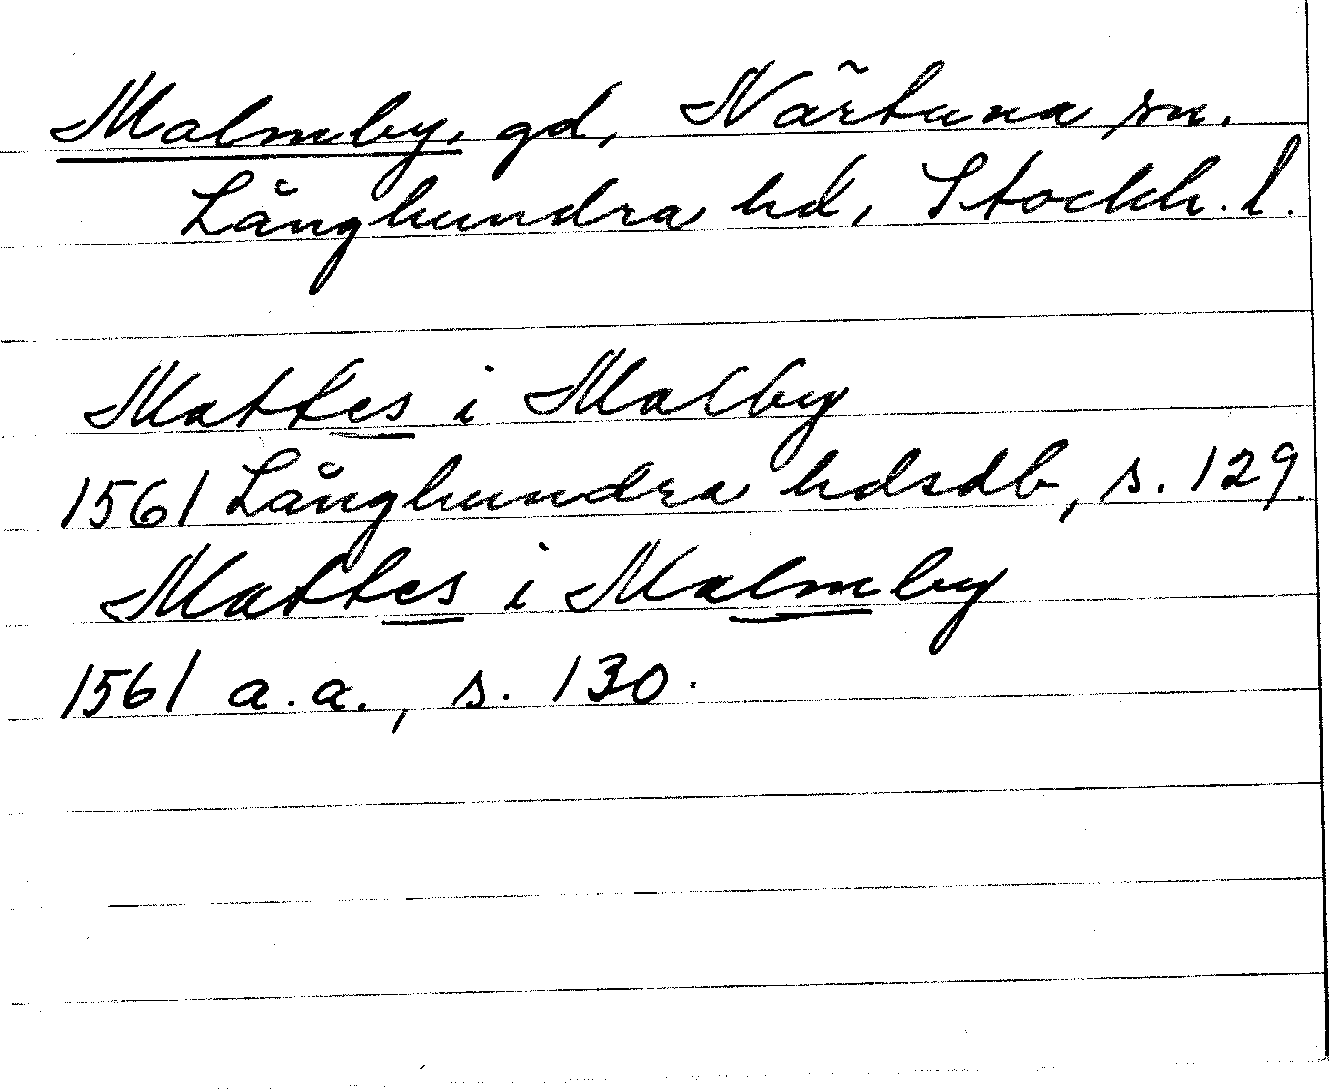 Malmby, gd, Närtuna sn.
Långhundra hd, Stockh. l.
Mattes i Malby
1561 Långhundra hdsdb, s. 129.
Mattes i Malmby
1561 a.a., s. 130.